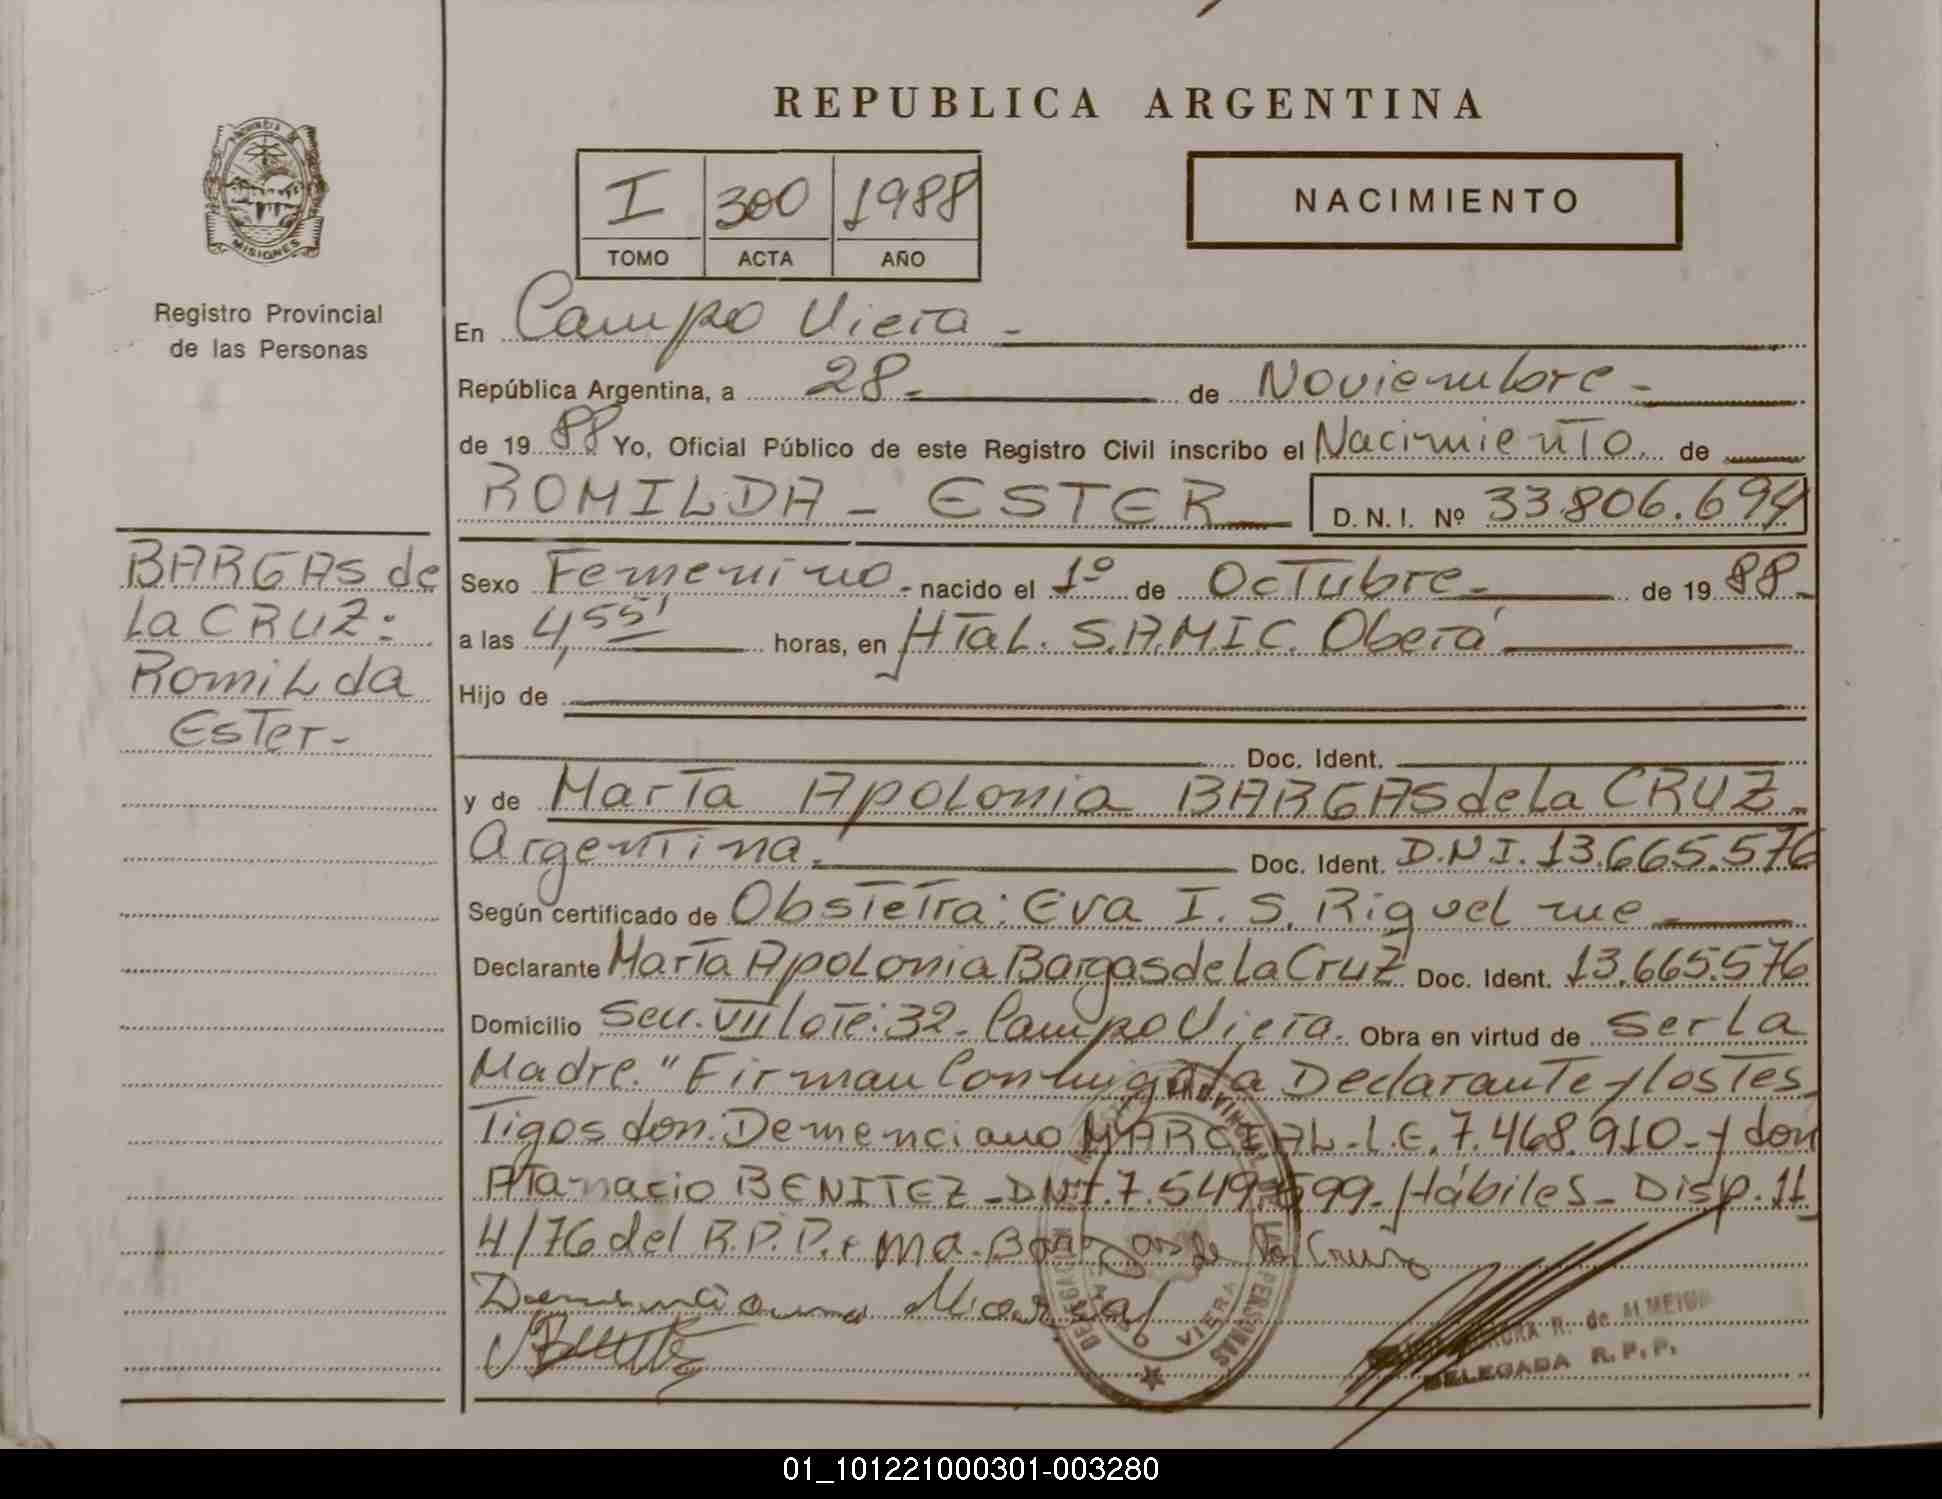 REPUBLICA ARGENTINA
PROVINCIA DE
MISIONES
Registro Provincial
de las Personas
I 300 1988
TOMO ACTA AÑO
NACIMIENTO
En Campo Viera -
República Argentina, a 28- de Noviembre -
de 1988 Yo, Oficial Público de este Registro Civil inscribo el Nacimiento de
ROMILDA - ESTER D.N.I. Nº 33.806.694
BARGAS de
La CRUZ:
Romilda
Ester-
Sexo Femenino - nacido el 1º de Octubre - de 1988-
a las 4,55' horas, en Htal. S.A.M.I.C. Oberá
Hijo de
Doc. Ident.
y de María Apolonia BARGAS de la CRUZ -
Argentina. Doc. Ident. D.N.I. 13.665.576
Según certificado de Obstetra: Eva I. S. Riquelme
Declarante María Apolonia Bargas de La Cruz Doc. Ident. 13.665.576
Domicilio Secc. VII lote: 32- Campo Viera. Obra en virtud de ser la
Madre." Firman Conmigo la Declarante y los Tes-
Tigos don. Demenciano MARCIAL - L.E. 7.468.910 - y don
Atanacio BENITEZ - DNI. 7.549.599 - Hábiles - Disp. 11
4/76 del R.P.P. Ma. Bargas de la Cruz
Demenciano Marcial
R. de ALMEIDA
DELEGADA R.P.P.
PROVINCIAL DE PERSONAS
DELEGACION
VIERA
01_101221000301-003280